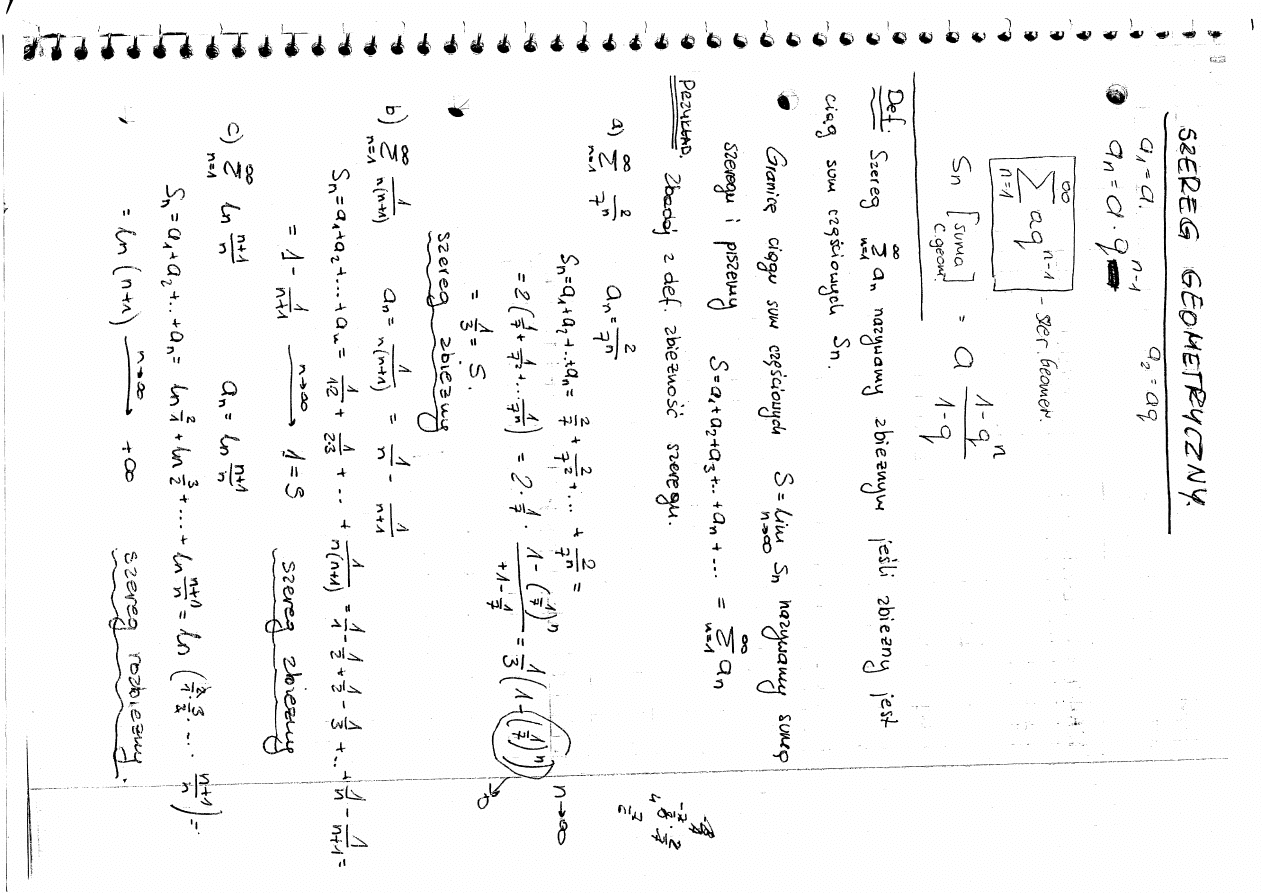 SZEREG GEOMETRYCZNY.
a₁ = a. a₂ = aq
aₙ = a · qⁿ⁻¹
∑_{n=1}^{∞} aqⁿ⁻¹ - szer. Geometr.
Sₙ [suma c. geom.] = a (1-qⁿ)/(1-q)
Def. Szereg ∑_{n=1}^{∞} aₙ nazywamy zbieżnym jeśli zbieżny jest
ciąg sum częściowych Sₙ.
Granicę ciągu sum częściowych S = lim_{n→∞} Sₙ nazywamy sumą
szeregu i piszemy S = a₁+a₂+a₃+...+aₙ+... = ∑_{n=1}^{∞} aₙ
PRZYKŁAD. Zbadaj z def. zbieżność szeregu.
a) ∑_{n=1}^{∞} 2/7ⁿ aₙ = 2/7ⁿ
Sₙ = a₁+a₂+...+aₙ = 2/7 + 2/7² + ... + 2/7ⁿ =
= 2(1/7 + 1/7² + ... 1/7ⁿ) = 2 · 1/7 · (1-(1/7)ⁿ)/(+1-1/7) = 1/3 (1-(1/7)ⁿ) n→∞
→0
= 1/3 = S.
szereg zbieżny
b) ∑_{n=1}^{∞} 1/(n(n+1)) aₙ = 1/(n(n+1)) = 1/n - 1/(n+1)
Sₙ = a₁+a₂+...+aₙ = 1/(1·2) + 1/(2·3) + ... + 1/(n(n+1)) = 1/1 - 1/2 + 1/2 - 1/3 + ... + 1/n - 1/(n+1) =
= 1 - 1/(n+1) n→∞ → 1 = S szereg zbieżny
c) ∑_{n=1}^{∞} ln (n+1)/n aₙ = ln (n+1)/n
Sₙ = a₁+a₂+...+aₙ = ln 2/1 + ln 3/2 + ... + ln (n+1)/n = ln (2/1 · 3/2 · ... (n+1)/n) =
= ln (n+1) n→∞ → +∞ szereg rozbieżny.